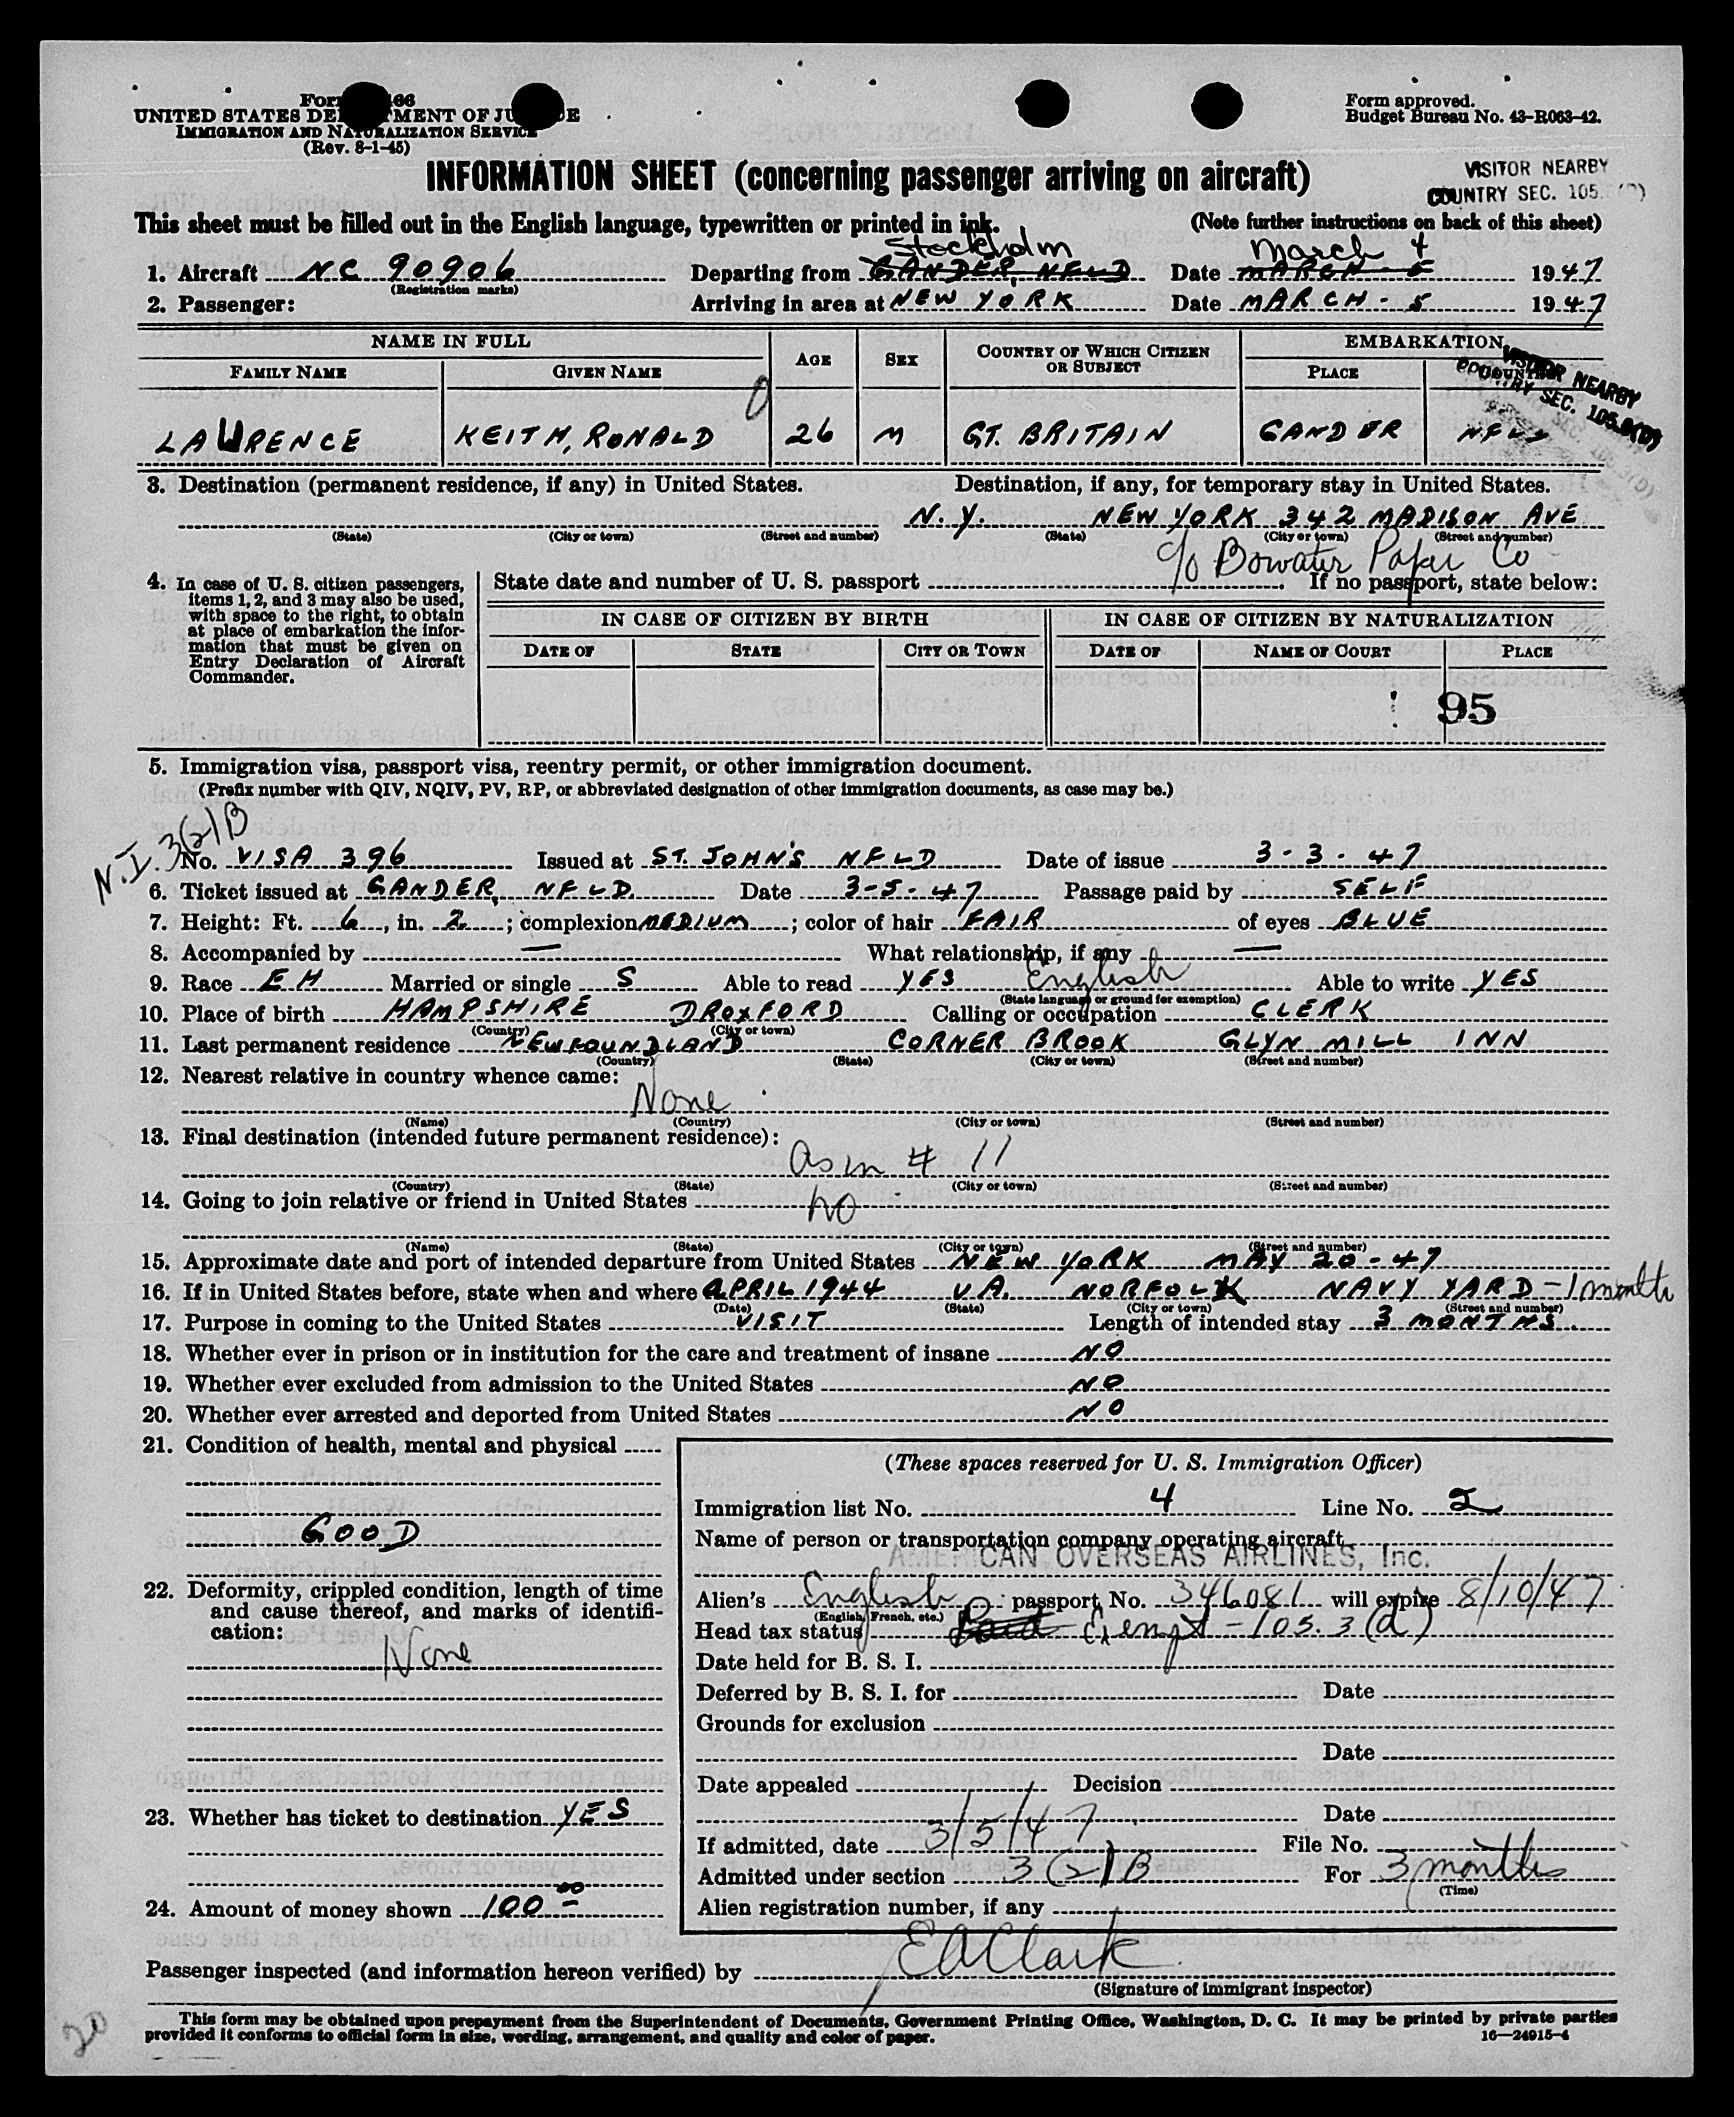 Form 466
UNITED STATES DEPARTMENT OF JUSTICE
IMMIGRATION AND NATURALIZATION SERVICE
(Rev. 8-1-45)
Form approved.
Budget Bureau No. 43-R063-42.
INFORMATION SHEET (concerning passenger arriving on aircraft)
VISITOR NEARBY
COUNTRY SEC. 105.
This sheet must be filled out in the English language, typewritten or printed in ink.
(Note further instructions on back of this sheet)
Stockholm March 4
1. Aircraft NC 90906 Departing from GANDER, NFLD Date MARCH - 5 1947
(Registration marks)
2. Passenger: Arriving in area at NEW YORK Date MARCH - 5 1947
NAME IN FULL AGE SEX COUNTRY OF WHICH CITIZEN OR SUBJECT EMBARKATION
FAMILY NAME GIVEN NAME PLACE COUNTRY
VISITOR NEARBY
COUNTRY SEC. 105.3(D)
LAWRENCE KEITH, RONALD 26 M GT. BRITAIN GANDER NFLD
3. Destination (permanent residence, if any) in United States. Destination, if any, for temporary stay in United States.
N.Y. NEW YORK 342 MADISON AVE
(State) (City or town) (Street and number) (State) (City or town) (Street and number)
c/o Bowater Paper Co
4. In case of U. S. citizen passengers, items 1, 2, and 3 may also be used, with space to the right, to obtain at place of embarkation the information that must be given on Entry Declaration of Aircraft Commander.
State date and number of U. S. passport . If no passport, state below:
IN CASE OF CITIZEN BY BIRTH IN CASE OF CITIZEN BY NATURALIZATION
DATE OF STATE CITY OR TOWN DATE OF NAME OF COURT PLACE
95
5. Immigration visa, passport visa, reentry permit, or other immigration document.
(Prefix number with QIV, NQIV, PV, RP, or abbreviated designation of other immigration documents, as case may be.)
N.I. 3(2)B
No. VISA 396 Issued at ST. JOHN'S NFLD Date of issue 3-3-47
6. Ticket issued at GANDER, NFLD. Date 3-5-47 Passage paid by SELF
7. Height: Ft. 6, in. 2; complexion MEDIUM; color of hair FAIR of eyes BLUE
8. Accompanied by — What relationship, if any —
9. Race EH Married or single S Able to read YES English Able to write YES
(State language or ground for exemption)
10. Place of birth HAMPSHIRE DROXFORD Calling or occupation CLERK
(Country) (City or town)
11. Last permanent residence NEWFOUNDLAND CORNER BROOK GLYN MILL INN
(Country) (State) (City or town) (Street and number)
12. Nearest relative in country whence came:
None
(Name) (Country) (City or town) (Street and number)
13. Final destination (intended future permanent residence):
As in # 11
(Country) (State) (City or town) (Street and number)
14. Going to join relative or friend in United States no
(Name) (State) (City or town) (Street and number)
15. Approximate date and port of intended departure from United States NEW YORK MAY 20-47
16. If in United States before, state when and where APRIL 1944 VA. NORFOLK NAVY YARD - 1 month
(Date) (State) (City or town) (Street and number)
17. Purpose in coming to the United States VISIT Length of intended stay 3 MONTHS
18. Whether ever in prison or in institution for the care and treatment of insane NO
19. Whether ever excluded from admission to the United States NO
20. Whether ever arrested and deported from United States NO
21. Condition of health, mental and physical
GOOD
22. Deformity, crippled condition, length of time and cause thereof, and marks of identification:
None
23. Whether has ticket to destination YES
24. Amount of money shown 100.00
(These spaces reserved for U. S. Immigration Officer)
Immigration list No. 4 Line No. 2
Name of person or transportation company operating aircraft
AMERICAN OVERSEAS AIRLINES, Inc.
Alien's English passport No. 346081 will expire 8/10/47
(English, French, etc.)
Head tax status Exempt - 105.3(d)
Date held for B. S. I.
Deferred by B. S. I. for Date
Grounds for exclusion
Date
Date appealed Decision
Date
If admitted, date 3/5/47 File No.
Admitted under section 3(2)B For 3 months
(Time)
Alien registration number, if any
Passenger inspected (and information hereon verified) by EAClark
(Signature of immigrant inspector)
This form may be obtained upon prepayment from the Superintendent of Documents, Government Printing Office, Washington, D. C. It may be printed by private parties
provided it conforms to official form in size, wording, arrangement, and quality and color of paper. 16—24915-4
20